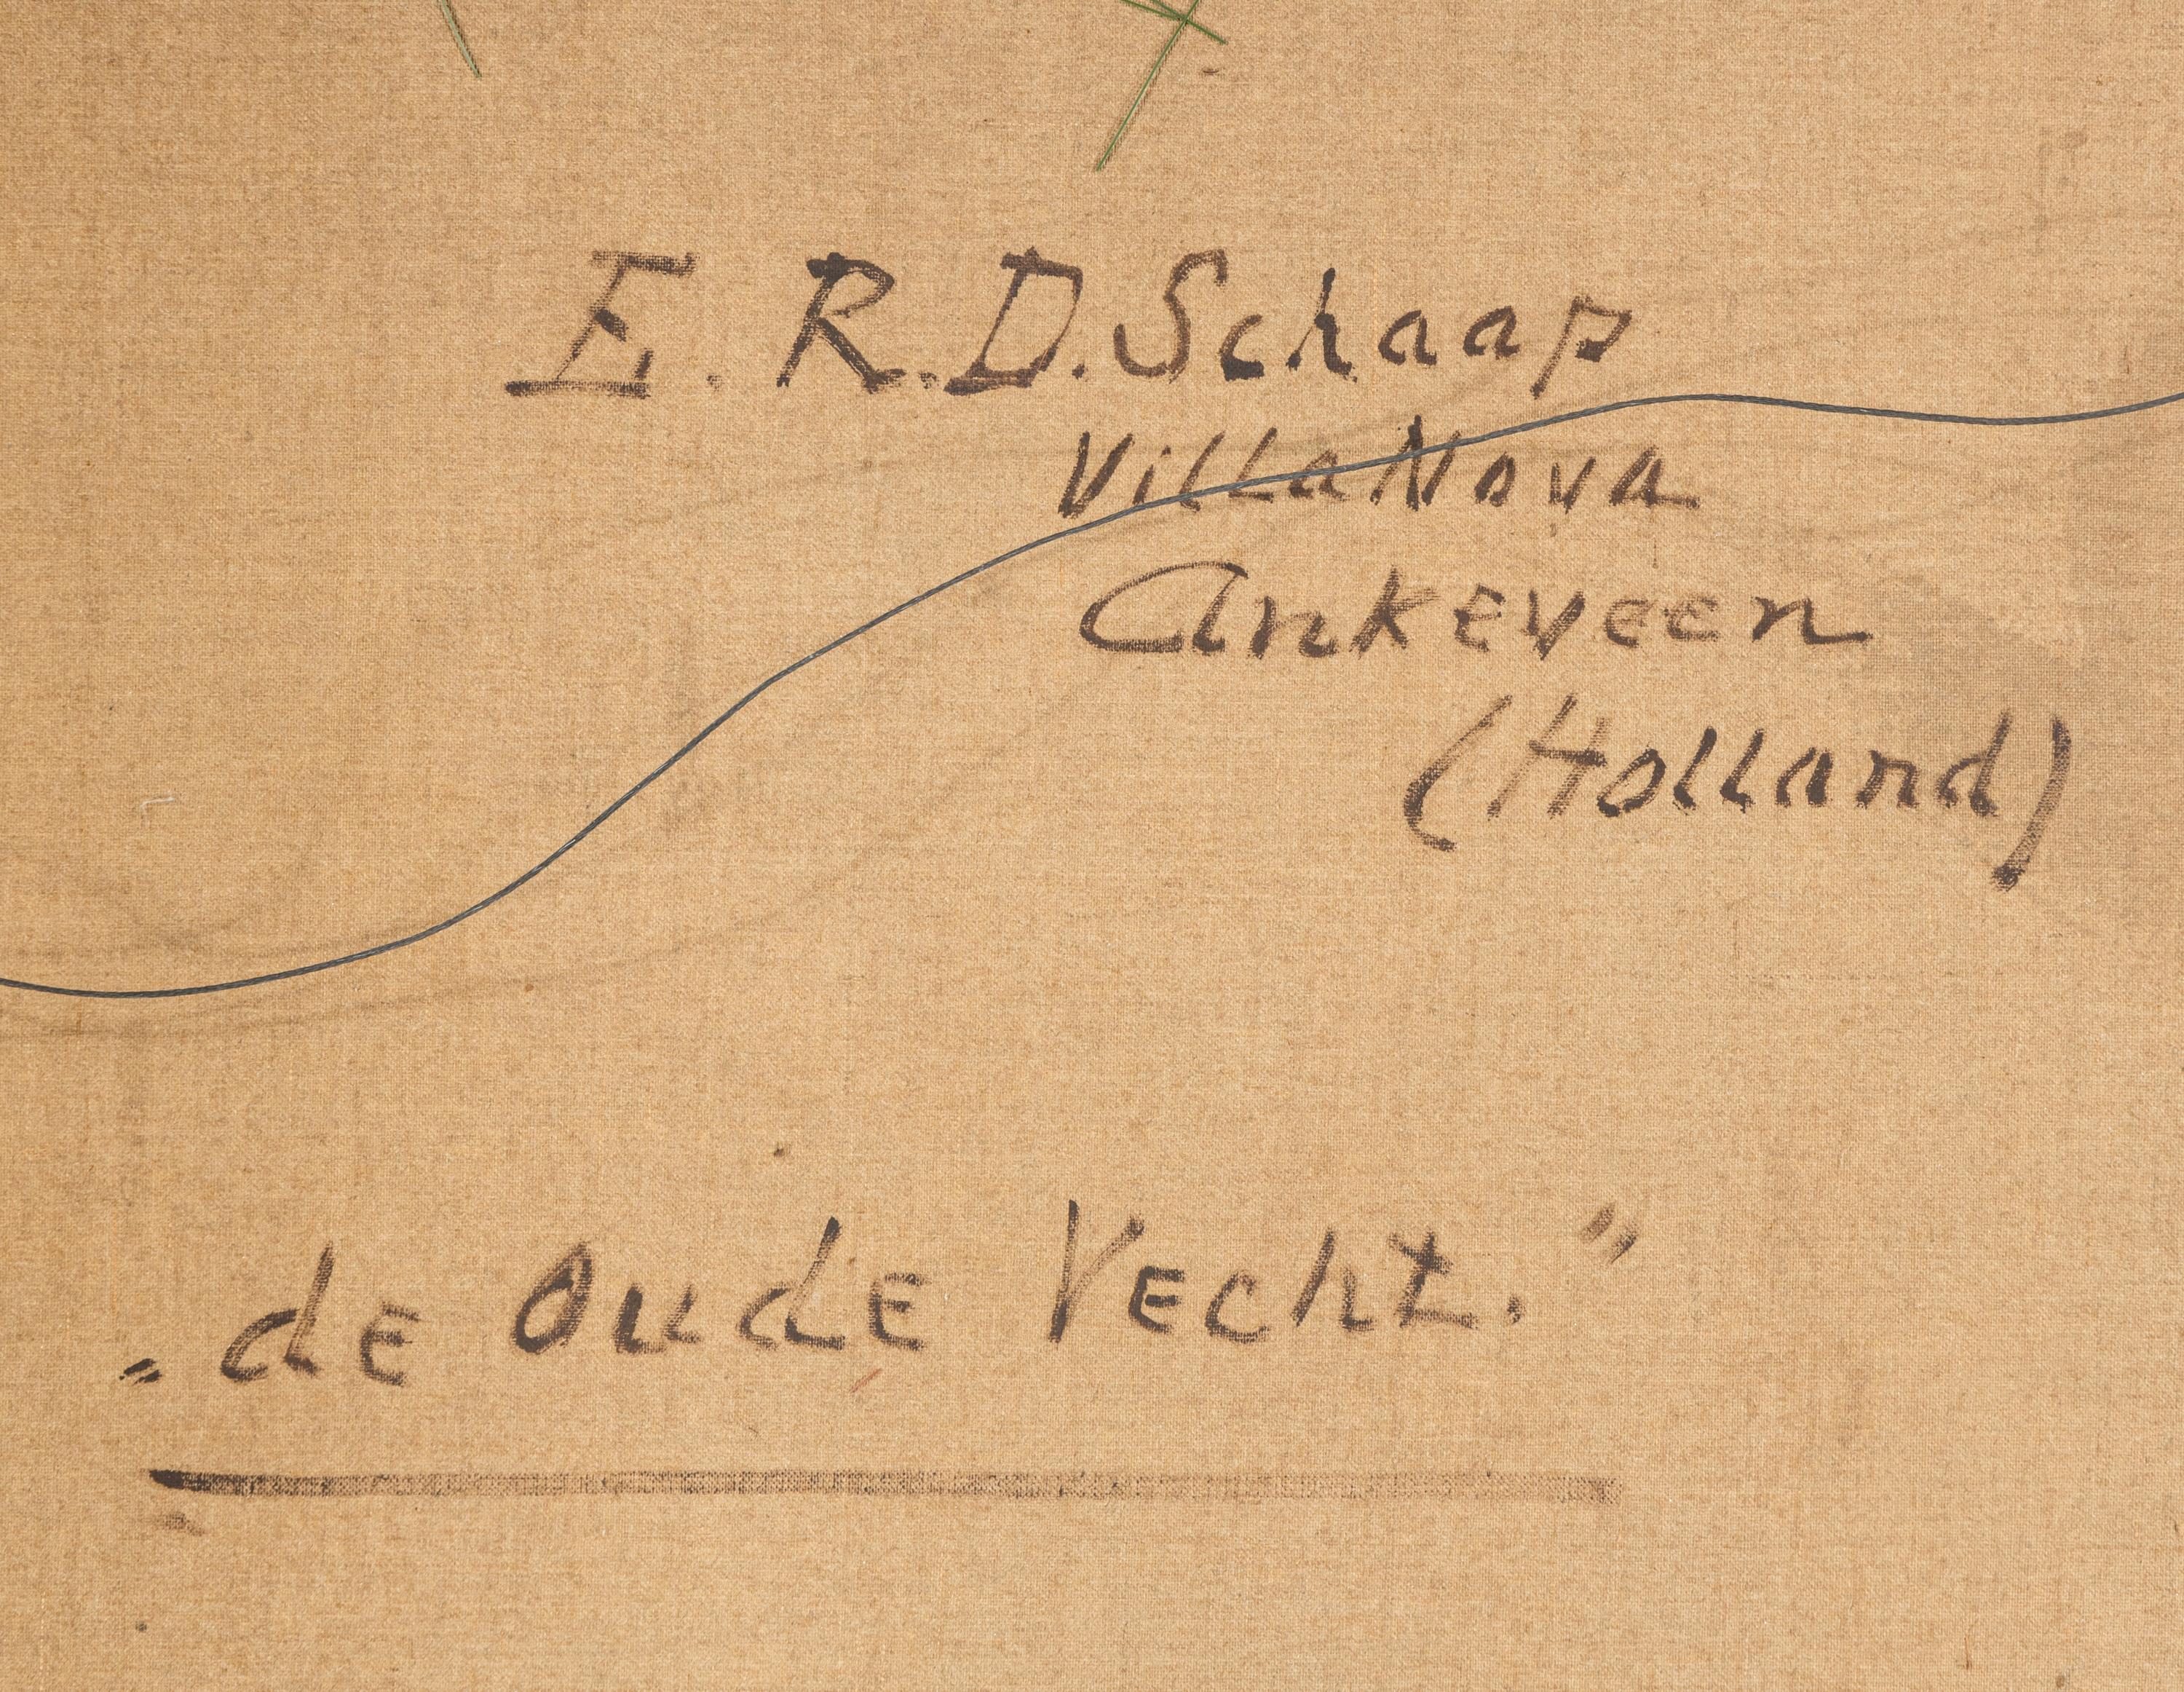 E. R. D. Schaap
Villa Nova
Ankeveen
(Holland)
„de Oude Vecht.”